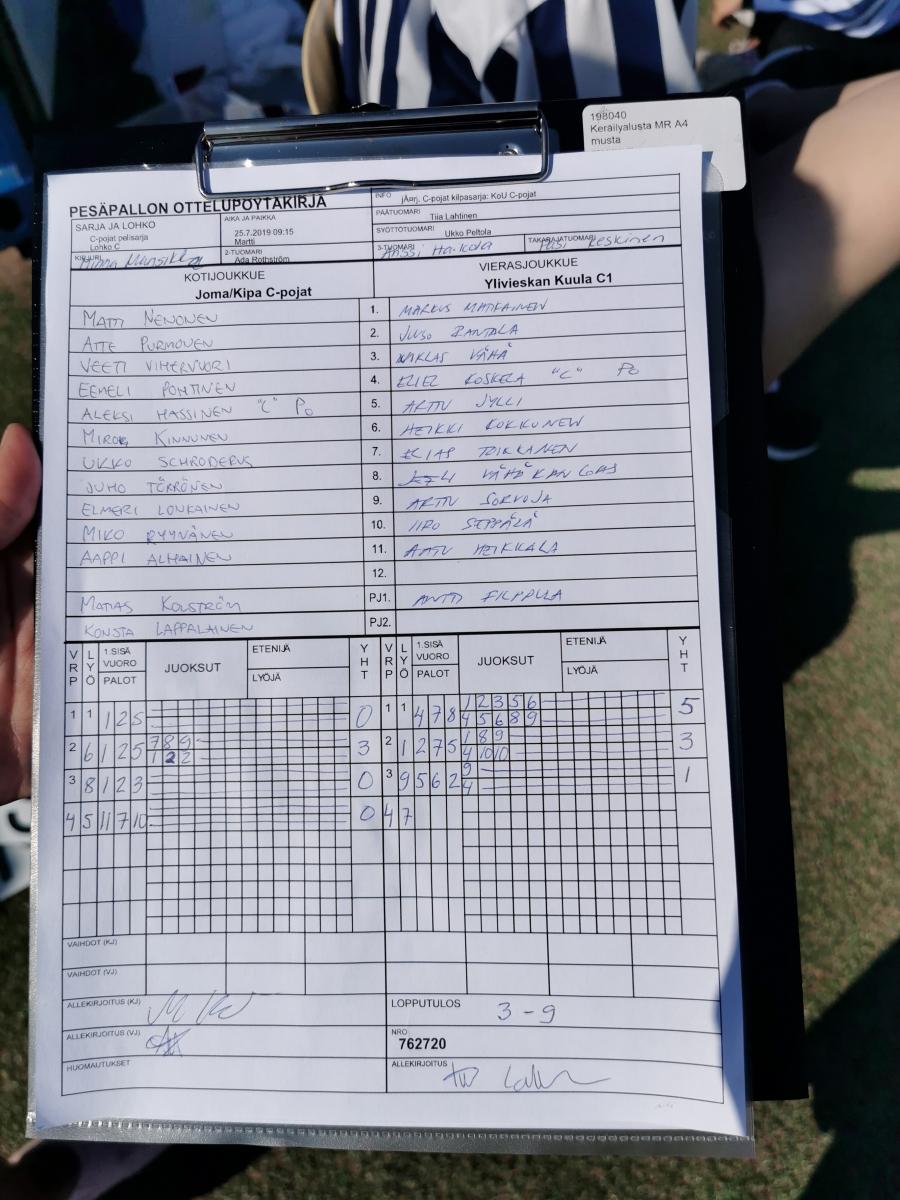 198040
Keräilyalusta MR A4
musta
PESÄPALLON OTTELUPÖYTÄKIRJA
INFO järj. C-pojat kilpasarja: KoU C-pojat
SARJA JA LOHKO
C-pojat pelisarja
Lohko C
AIKA JA PAIKKA
25.7.2019 09:15
Martti
PÄÄTUOMARI Tiia Lahtinen
SYÖTTÖTUOMARI Ukko Peltola
KIRJURI Minna
2-TUOMARI
Ada Rothström
3-TUOMARI Anssi Hakola
TAKARAJATUOMARI Pasi Keskinen
KOTIJOUKKUE
Joma/Kipa C-pojat
VIERASJOUKKUE
Ylivieskan Kuula C1
MATTI NENONEN 1. MARKUS MATKAINEN
ATTE PURMONEN 2. JUSO RANTALA
VEETI VIHERVUORI 3. NIKLAS VÄHÄ
EEMELI PONTINEN 4. ELIEL KOSKELA "C" Po
ALEKSI HASSINEN "C" Po 5. ARTTU JYLLI
MIRO KINNUNEN 6. HEIKKI KOKKONEN
UKKO SCHRODERUS 7. ELIAS TOIKKANEN
JUHO TÖRRÖNEN 8. VÄHÄKANGAS
ELMERI LONKAINEN 9. ARTTU SORVOJA
MIKO RYYNÄNEN 10. IIRO SEPPÄLÄ
AAPPI ALHAINEN 11. AATU HEIKKALA
12.
MATIAS KOLSTRÖM PJ1. ANTTI FILPPULA
KONSTA LAPPALAINEN PJ2.
VRP LYÖ 1.SISÄ VUORO PALOT JUOKSUT ETENIJÄ LYÖJÄ YHT VRP LYÖ 1.SISÄ VUORO PALOT JUOKSUT ETENIJÄ LYÖJÄ YHT
1 1 1 2 5 0 1 1 4 7 8 1 2 3 5 6 5
4 5 6 8 9
2 6 1 2 5 7 8 9 3 2 1 2 7 5 1 8 9 3
1 2 2 4 10 10
3 8 1 2 3 0 3 9 5 6 2 9 1
4
4 5 11 7 10 0 4 7
VAIHDOT (KJ)
VAIHDOT (VJ)
ALLEKIRJOITUS (KJ)
LOPPUTULOS 3-9
ALLEKIRJOITUS (VJ)
NRO
762720
HUOMAUTUKSET
ALLEKIRJOITUS